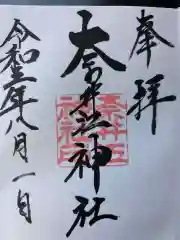 奉拝
奈井江神社
奈井江
神社印
令和年八月一日